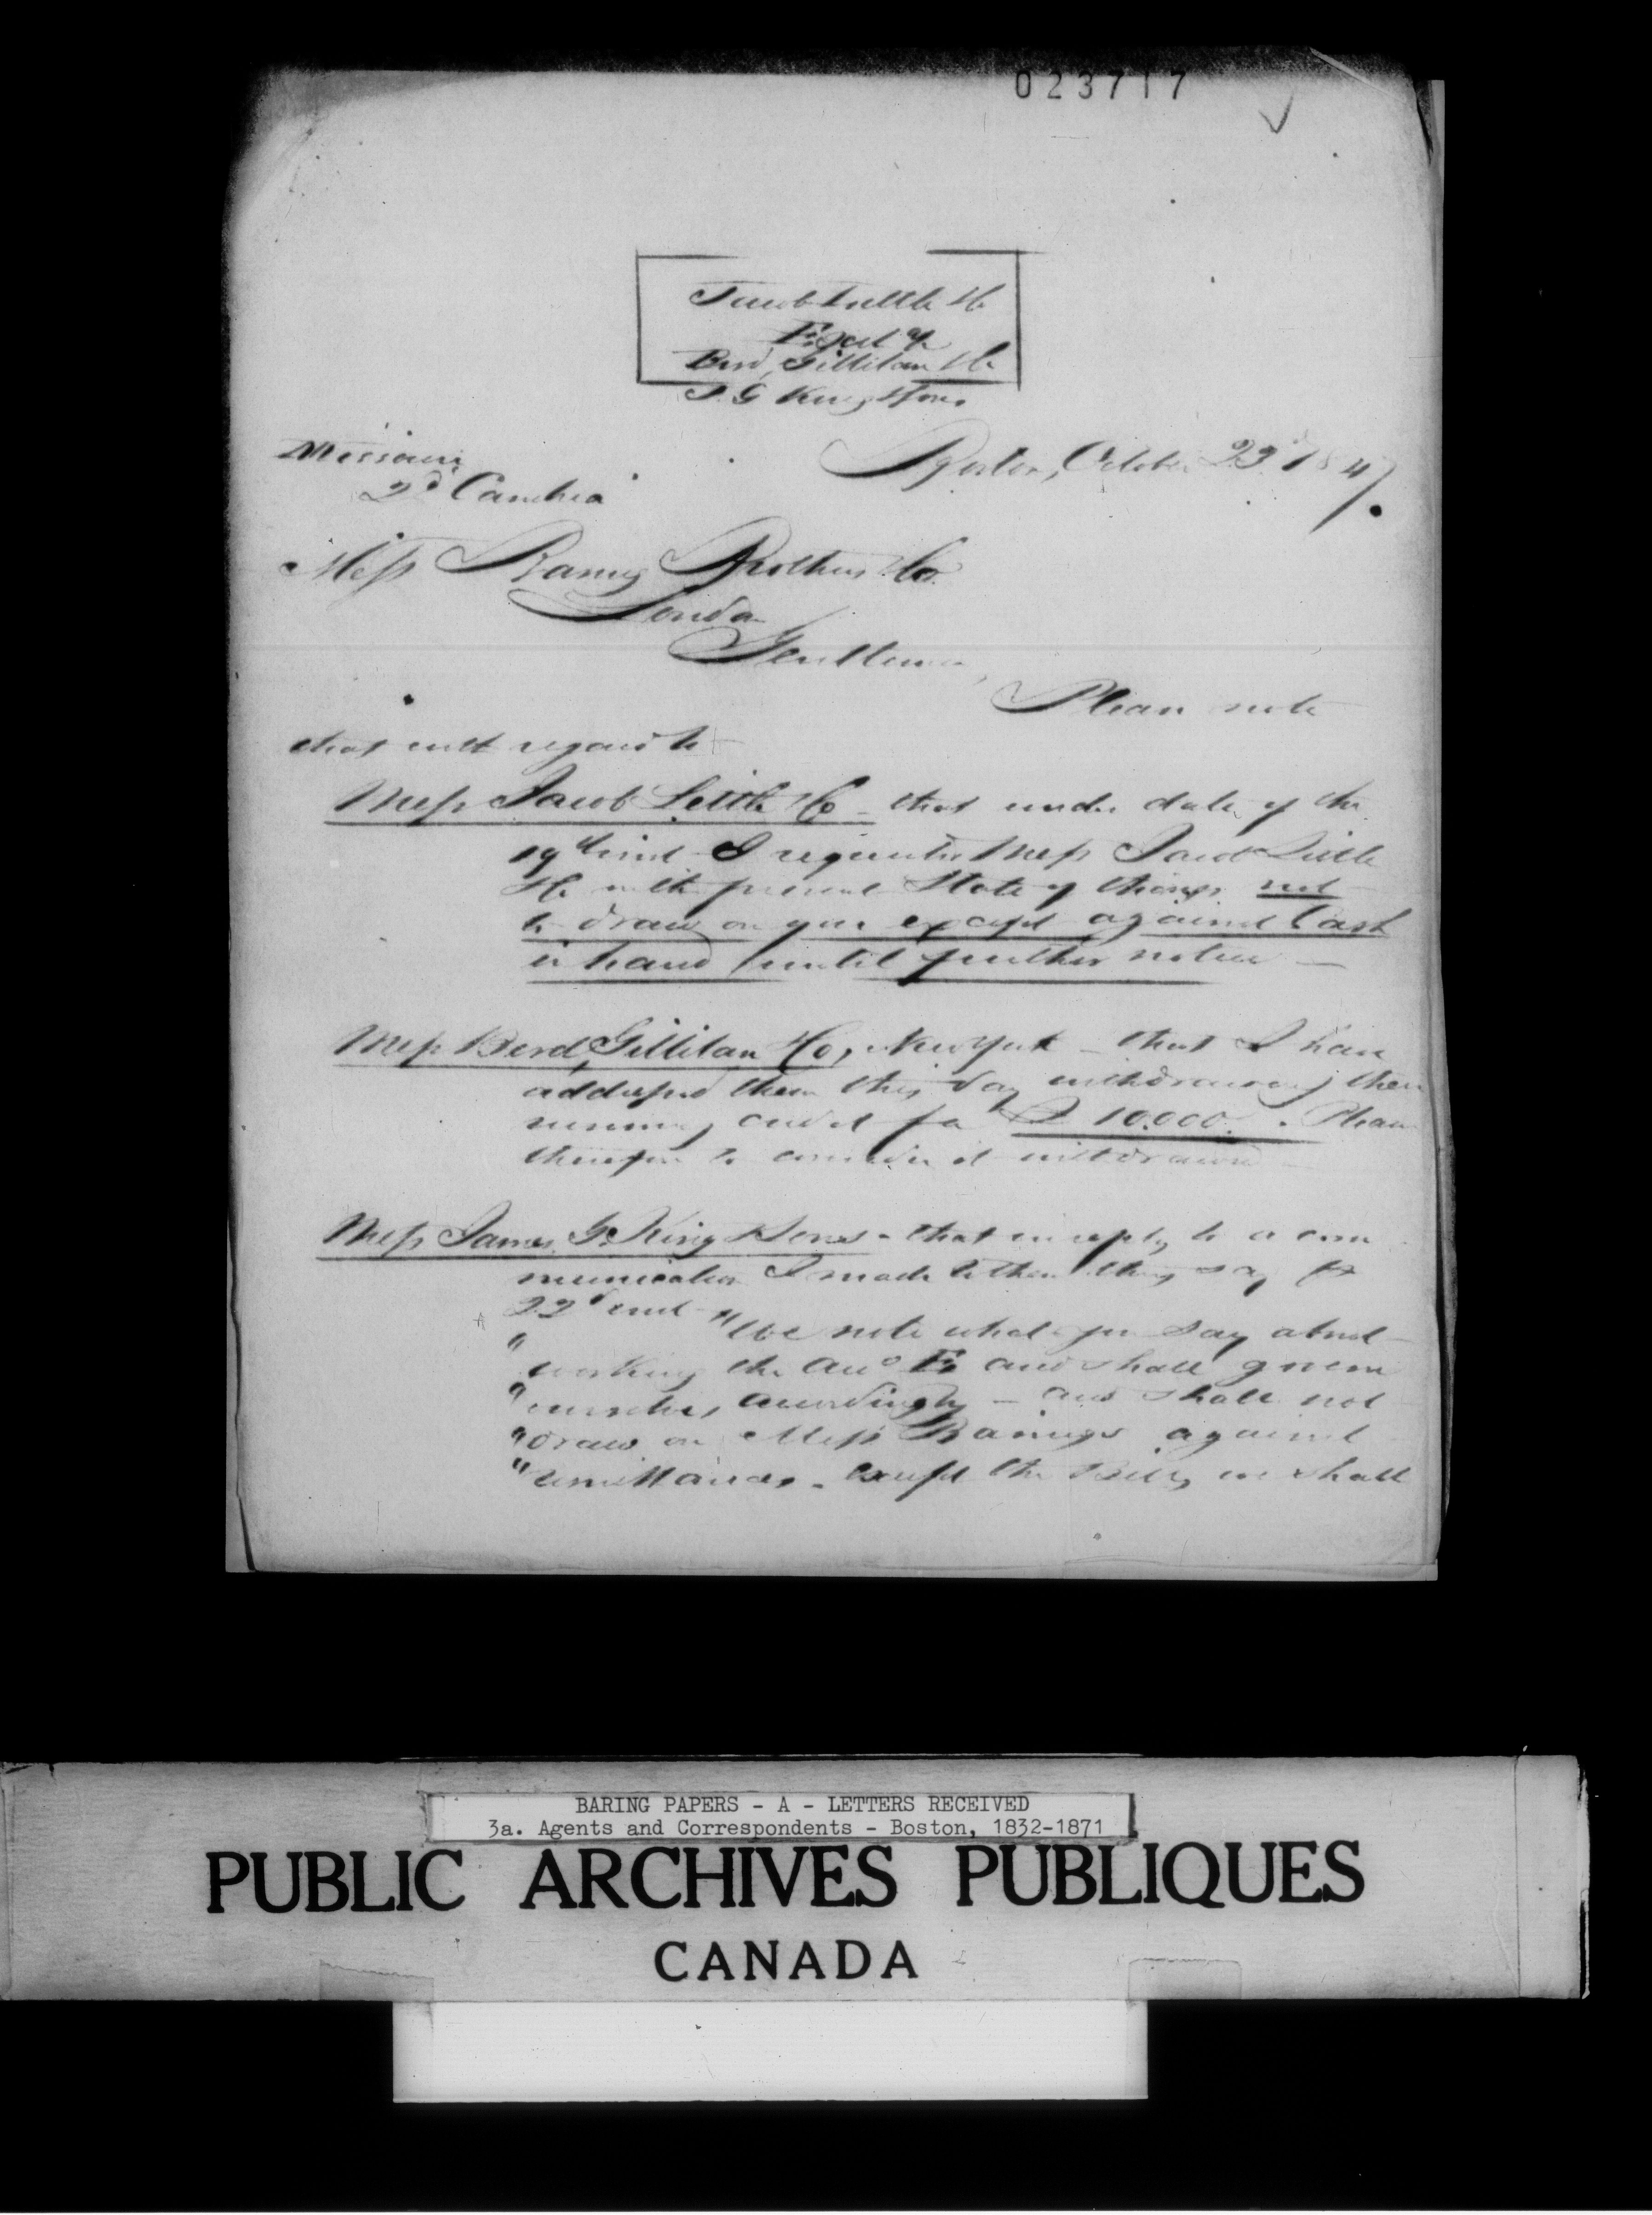 023717
Jacob Little & Co
Bird, Gillilan & Co
J. G King & Sons
Boston, October 23d 1847.
Missouri
2d Cambria
Mess Baring Brothers & Co.
London
Gentlemen,
Please note
that with regard to
Mess Jacob Little & Co - that under date of the
19th inst I requested Mess Jacob Little
& Co in the present State of things not
to draw on you except against Cash
in hand until further notice —
Mess Bird, Gillilan & Co, New York - that I have
addressed them this day withdrawing their
running credit for £ 10.000. Please
therefore to consider it withdrawn -
Mess James G. King & Sons - that in reply to a com
munication I made to them they say
22d inst "We note what you say about
" working the and shall govern
" ourselves accordingly — and shall not
" draw on Mess Barings against
" remittances - except the Bills we shall
BARING PAPERS - A - LETTERS RECEIVED
3a. Agents and Correspondents - Boston, 1832-1871
PUBLIC ARCHIVES PUBLIQUES
CANADA